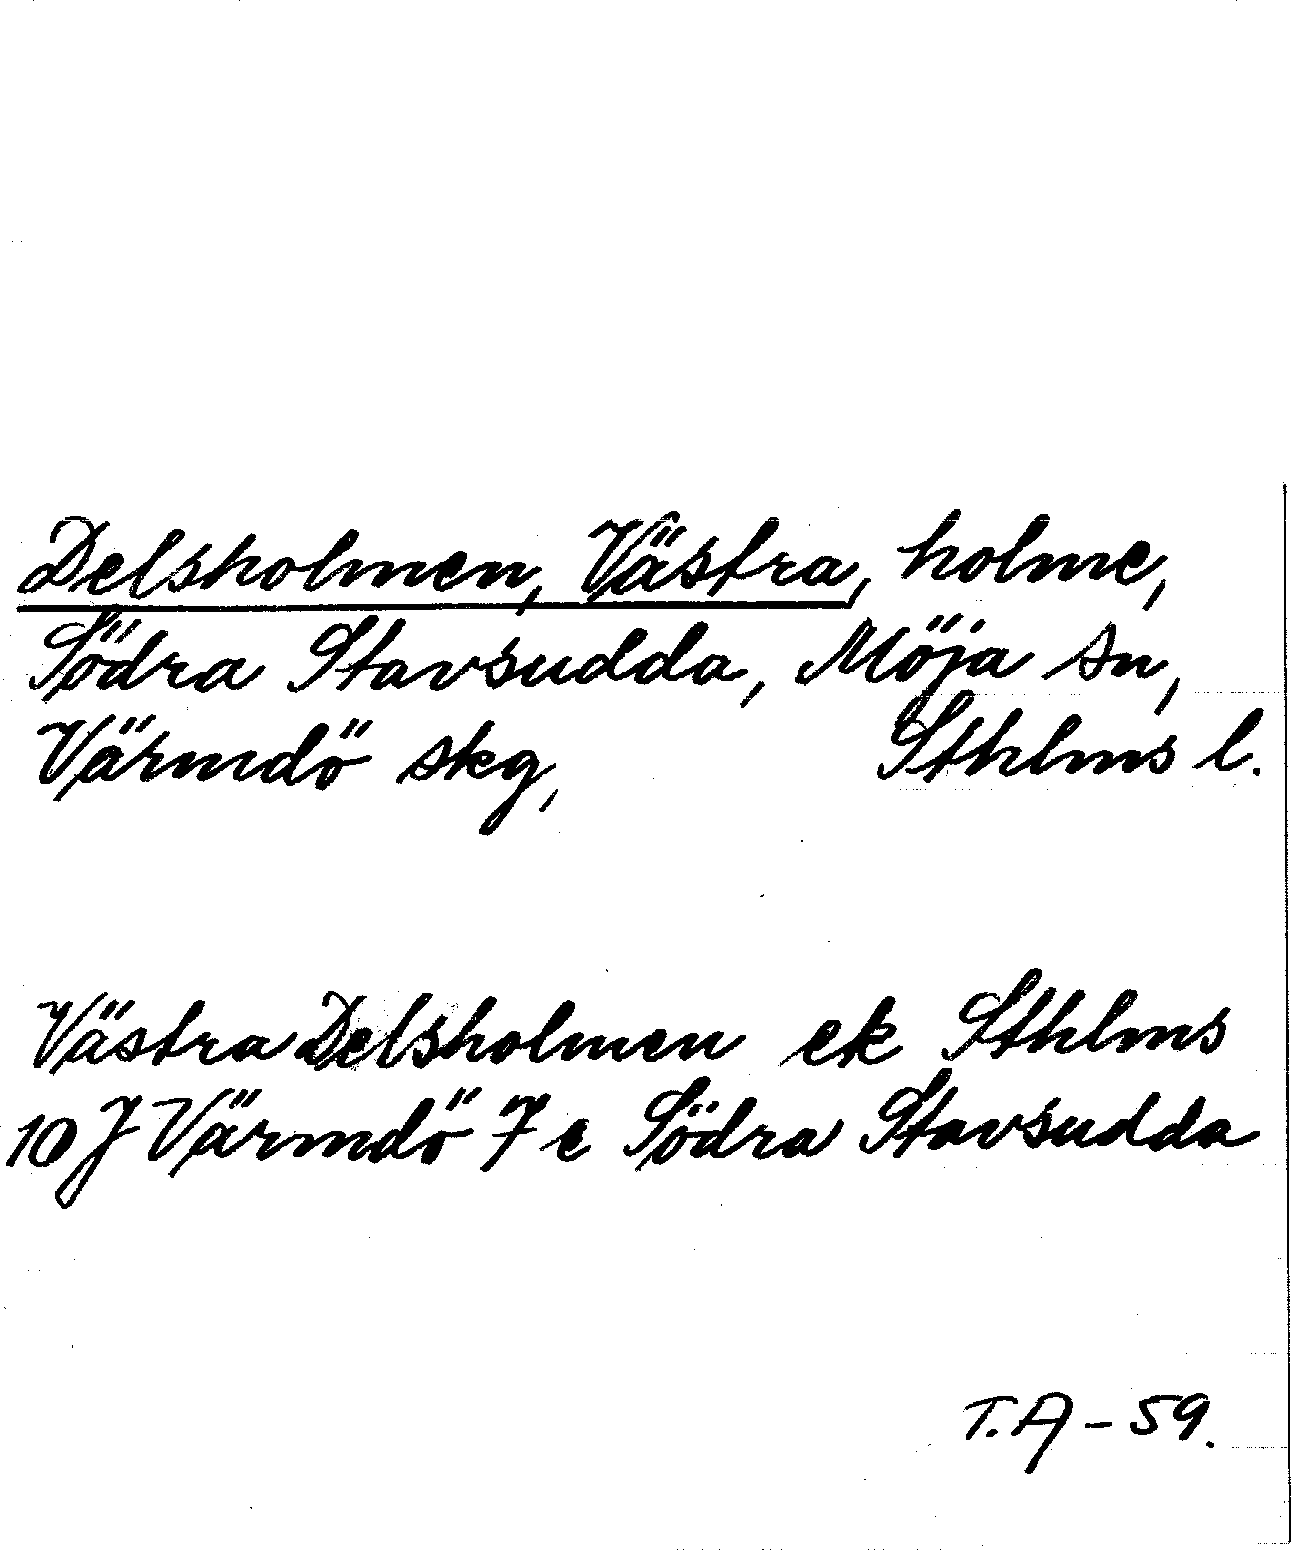 Delsholmen, Västra, holme,
Södra Stavsudda, Möja sn,
Värmdö skg, Sthlms l.
Västra Delsholmen ek Sthlms
10 J Värmdö 7 e Södra Stavsudda
T.A - 59.